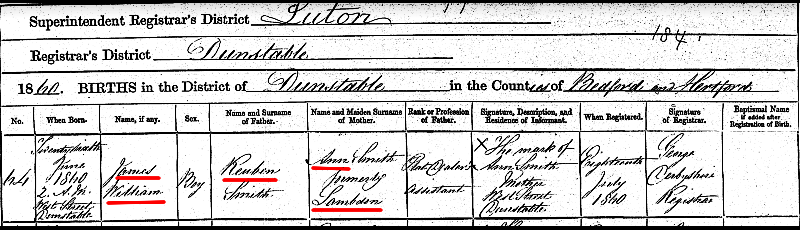 Superintendent Registrar's District Luton
Registrar's District Dunstable
184
1860. BIRTHS in the District of Dunstable in the Counties of Bedford and Hertford
No. When Born. Name, if any. Sex. Name and Surname of Father. Name and Maiden Surname of Mother. Rank or Profession of Father. Signature, Description, and Residence of Informant. When Registered. Signature of Registrar. Baptismal Name if added after Registration of Birth.
June
1860
2. A.M.
West Street
Dunstable
James
William
Boy
Reuben
Smith
Ann Smith
formerly
Lambden
Assistant
X The mark of
Ann Smith
Mother
West Street
Dunstable
Eighteenth
July
1860
George
Derbyshire
Registrar